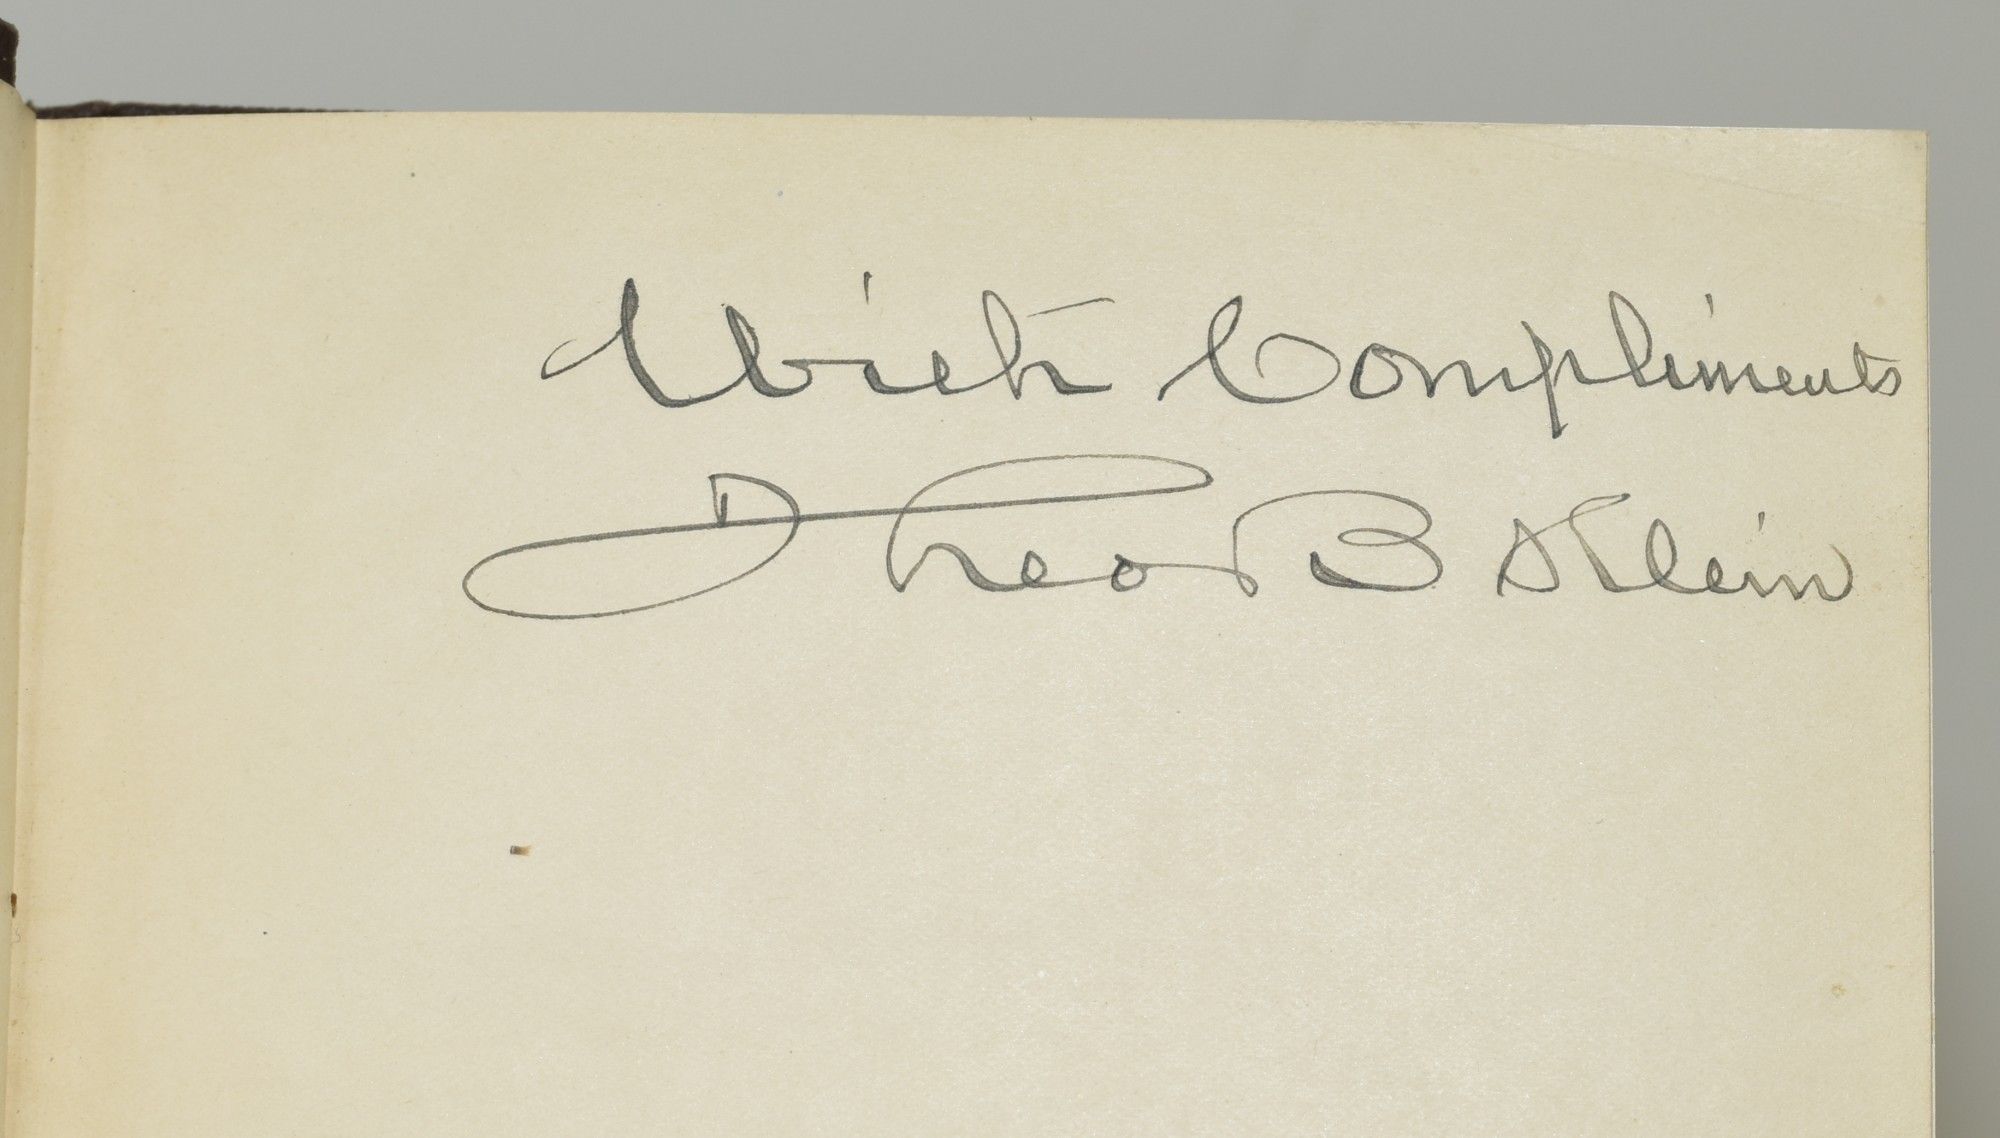 With Compliments
Theo B Klein